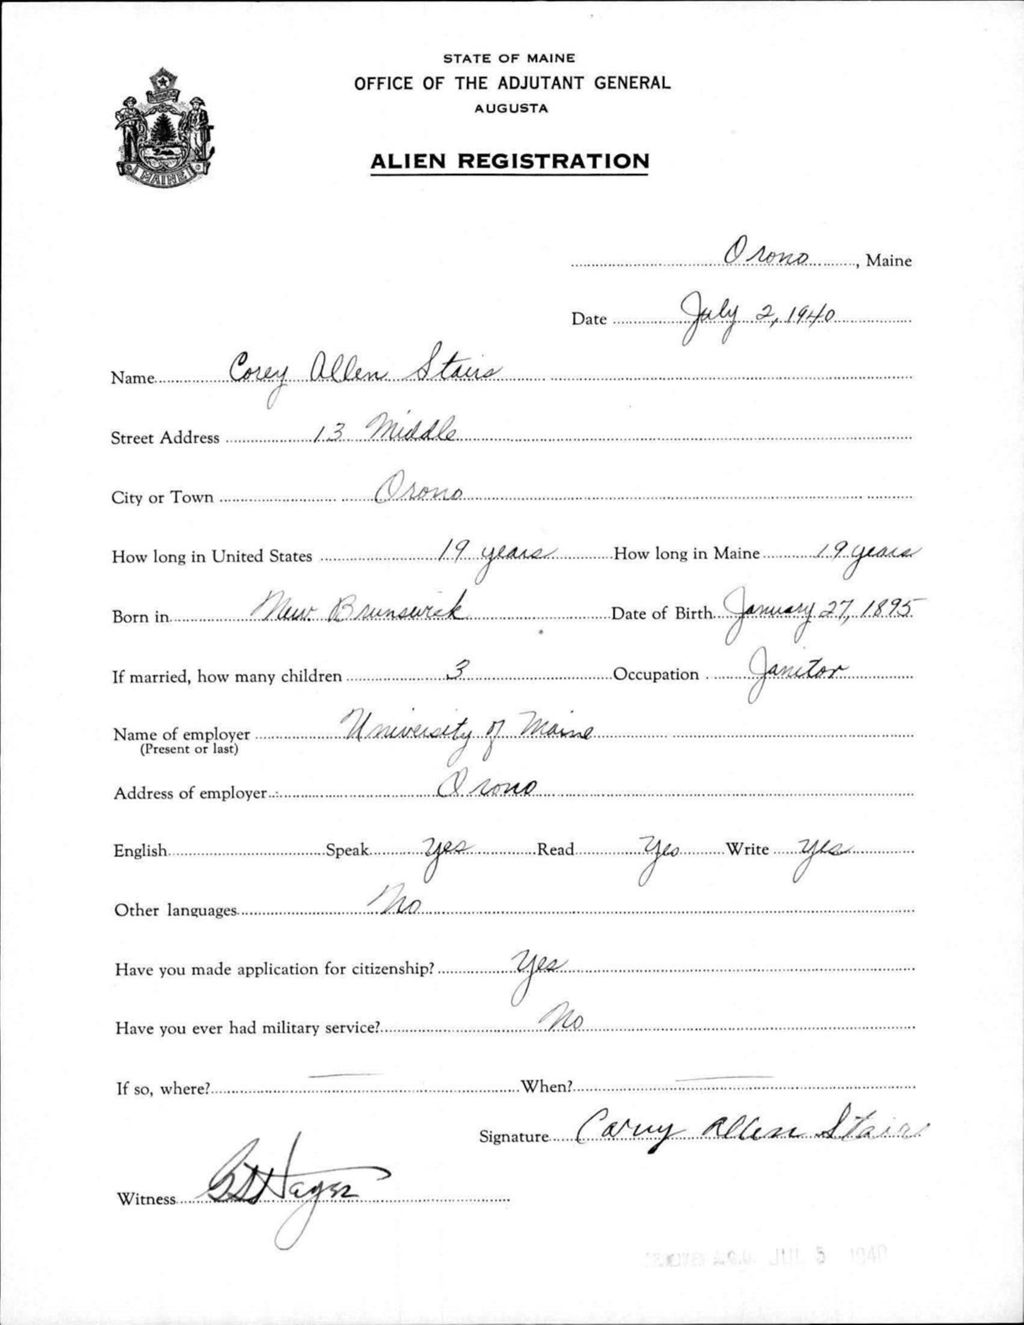 STATE OF MAINE
OFFICE OF THE ADJUTANT GENERAL
AUGUSTA
ALIEN REGISTRATION
MAINE
Orono, Maine
Date July 2, 1940
Name Corey Allen Stairs
Street Address 13 Middle
City or Town Orono
How long in United States 19 years How long in Maine 19 years
Born in New Brunswick Date of Birth January 27, 1895
If married, how many children 3 Occupation Janitor
Name of employer University of Maine
(Present or last)
Address of employer Orono
English Speak Yes Read Yes Write Yes
Other languages No
Have you made application for citizenship? Yes
Have you ever had military service? No
If so, where? — When? —
Signature Carey Allen Stairs
Witness
A.G.O. JUL 5 1940